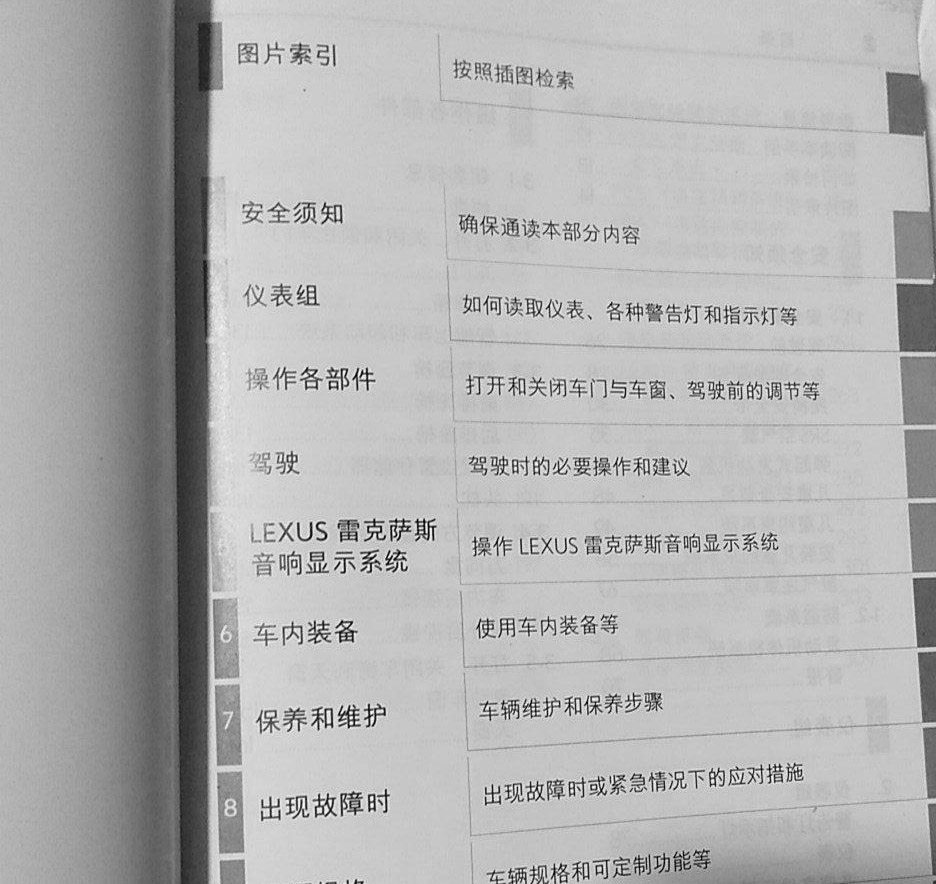 图片索引
按照插图检索
安全须知
确保通读本部分内容
仪表组
如何读取仪表、各种警告灯和指示灯等
操作各部件
打开和关闭车门与车窗、驾驶前的调节等
驾驶
驾驶时的必要操作和建议
LEXUS 雷克萨斯
音响显示系统
操作 LEXUS 雷克萨斯音响显示系统
6 车内装备
使用车内装备等
7 保养和维护
车辆维护和保养步骤
8 出现故障时
出现故障时或紧急情况下的应对措施
车辆规格和可定制功能等